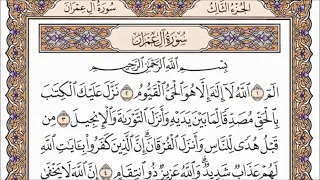 سُورَةُ آلِ عِمْرَانَ الجُزْءُ الثَّالِثُ
سُورَةُ آلِ عِمْرَانَ
بِسْمِ اللَّهِ الرَّحْمَٰنِ الرَّحِيمِ
الٓمٓ ۝١ اللَّهُ لَا إِلَٰهَ إِلَّا هُوَ الْحَىُّ الْقَيُّومُ ۝٢ نَزَّلَ عَلَيْكَ الْكِتَٰبَ
بِالْحَقِّ مُصَدِّقًا لِّمَا بَيْنَ يَدَيْهِ وَأَنزَلَ التَّوْرَىٰةَ وَالْإِنجِيلَ ۝٣ مِن
قَبْلُ هُدًى لِّلنَّاسِ وَأَنزَلَ الْفُرْقَانَ ۗ إِنَّ الَّذِينَ كَفَرُوا بِـَٔايَٰتِ اللَّهِ
لَهُمْ عَذَابٌ شَدِيدٌ ۗ وَاللَّهُ عَزِيزٌ ذُو انتِقَامٍ ۝٤ إِنَّ اللَّهَ لَا يَخْفَىٰ